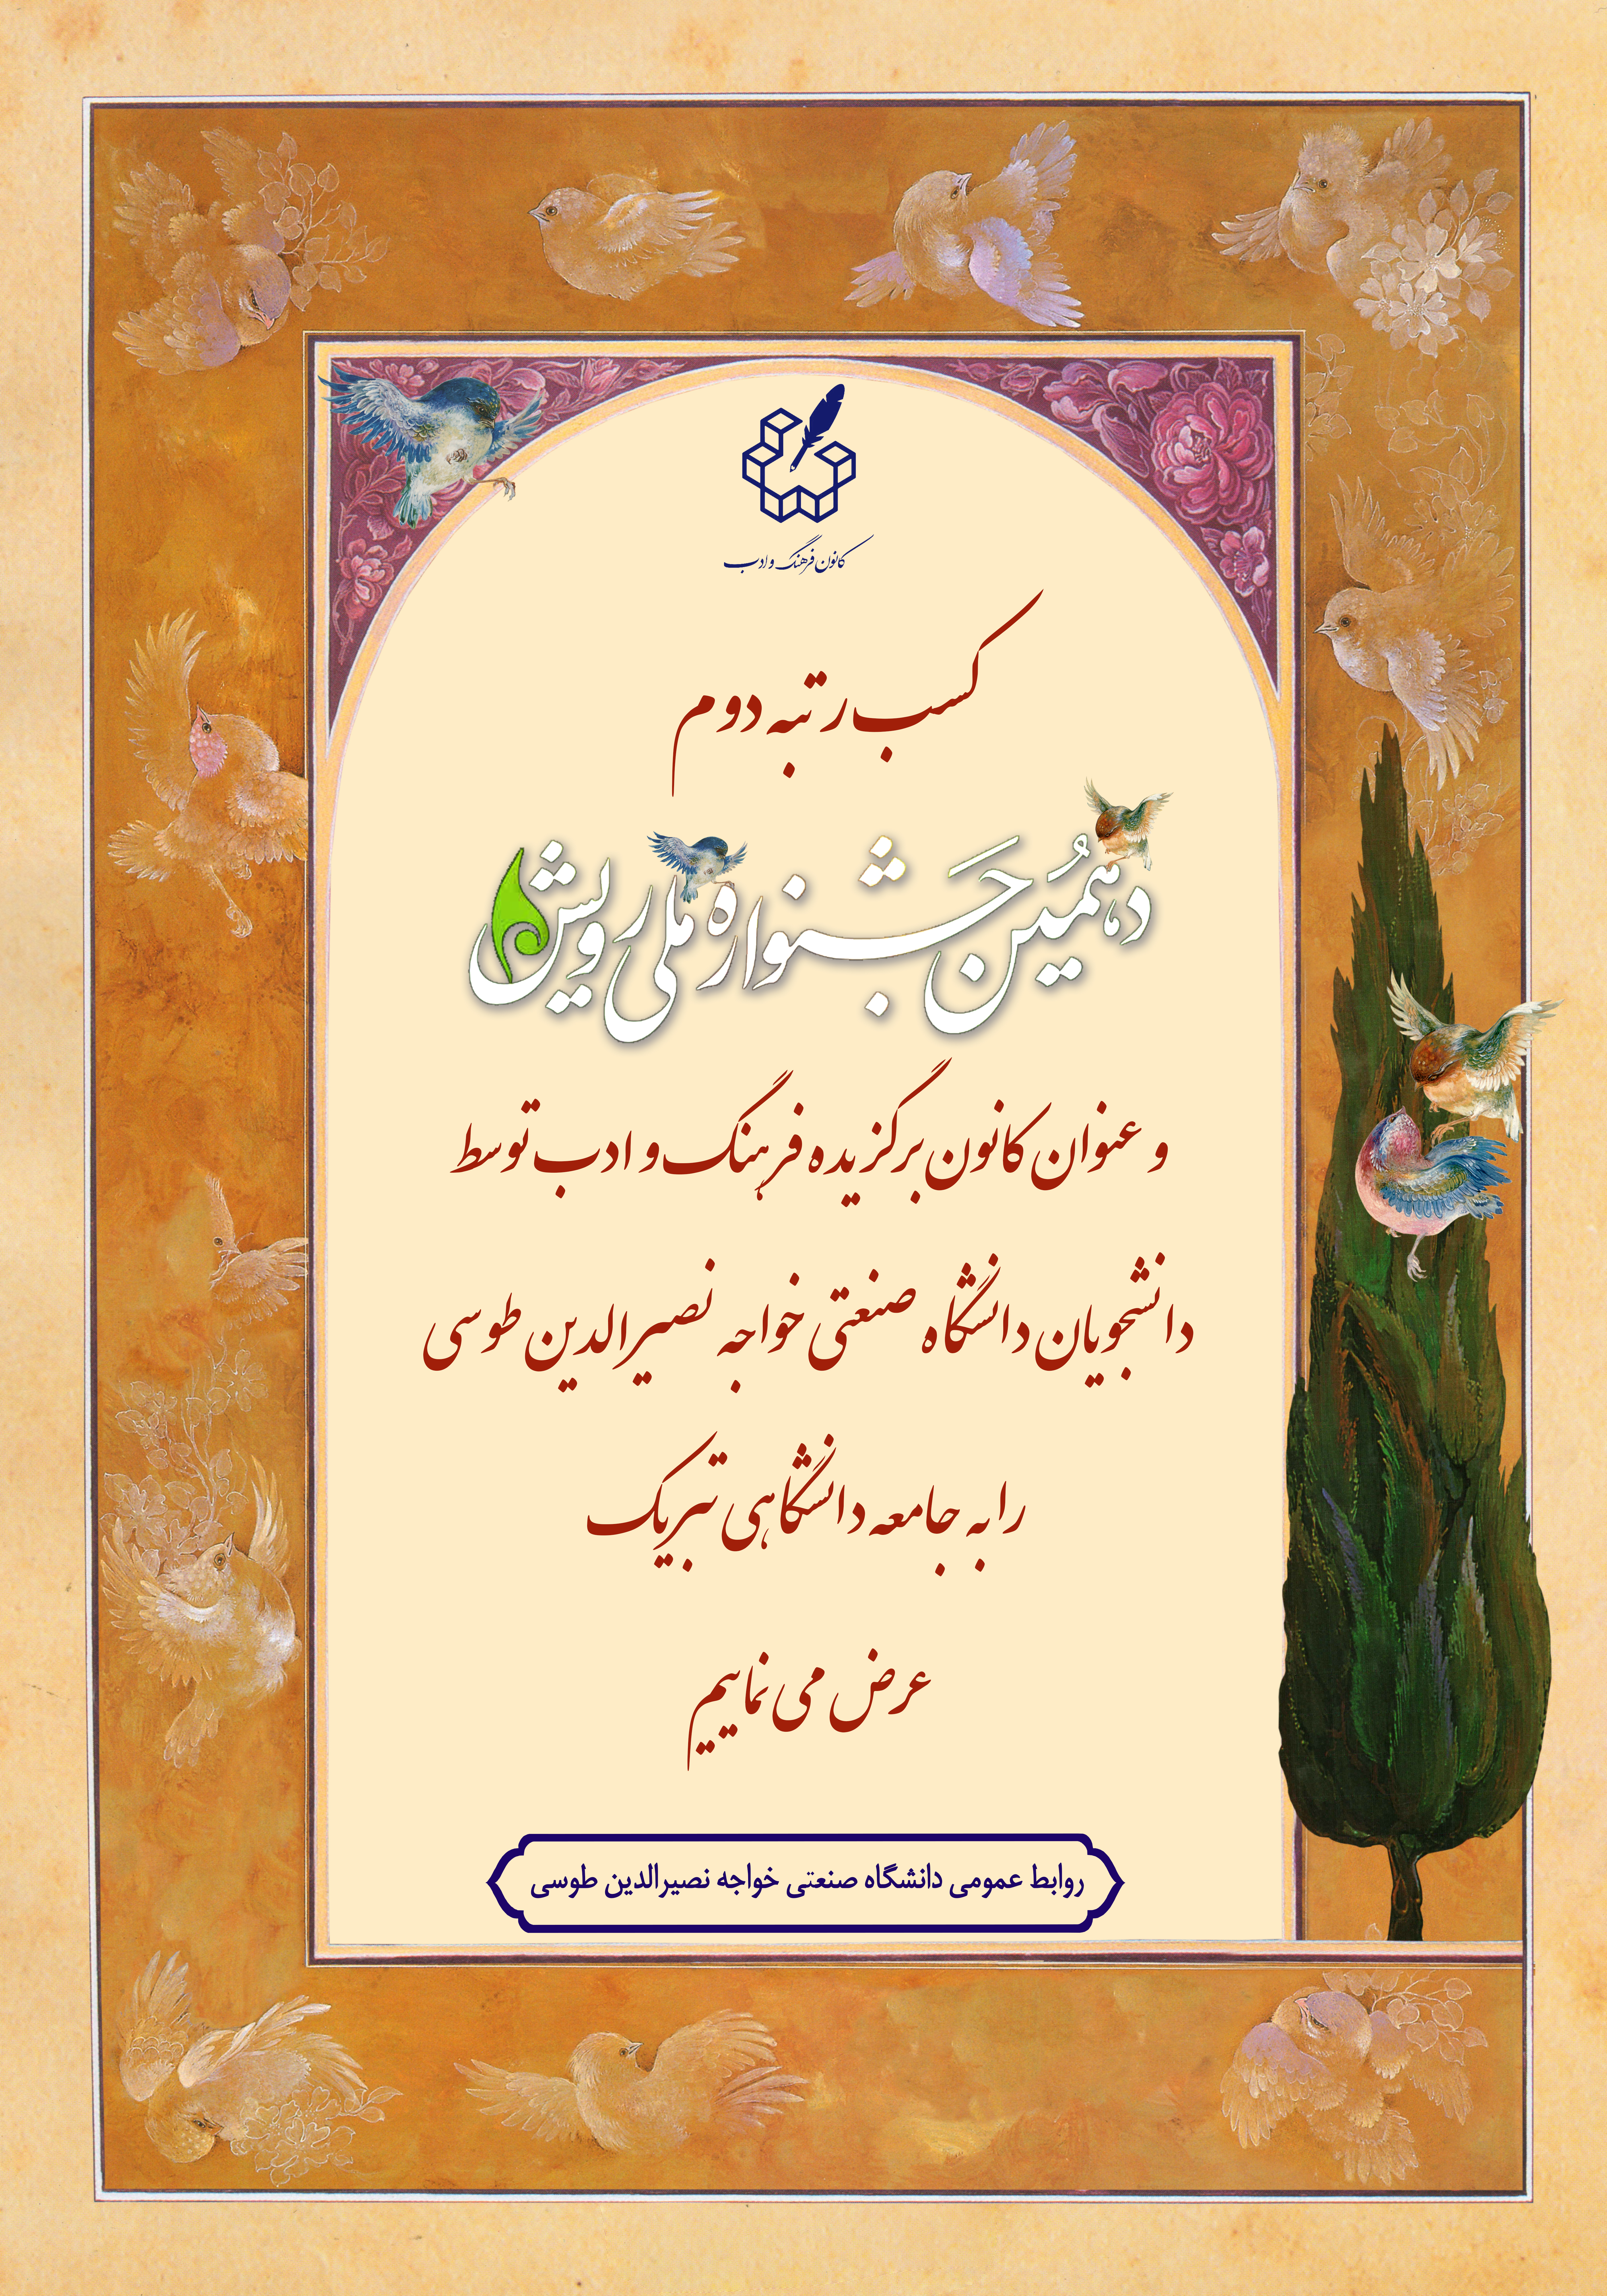 کانون فرهنگ و ادب
کسب رتبه دوم
دهمین جَشنواره ملی رویش
و عنوان کانون برگزیده فرهنگ و ادب توسط
دانشجویان دانشگاه صنعتی خواجه نصیرالدین طوسی
را به جامعه دانشگاهی تبریک
عرض می نماییم
روابط عمومی دانشگاه صنعتی خواجه نصیرالدین طوسی